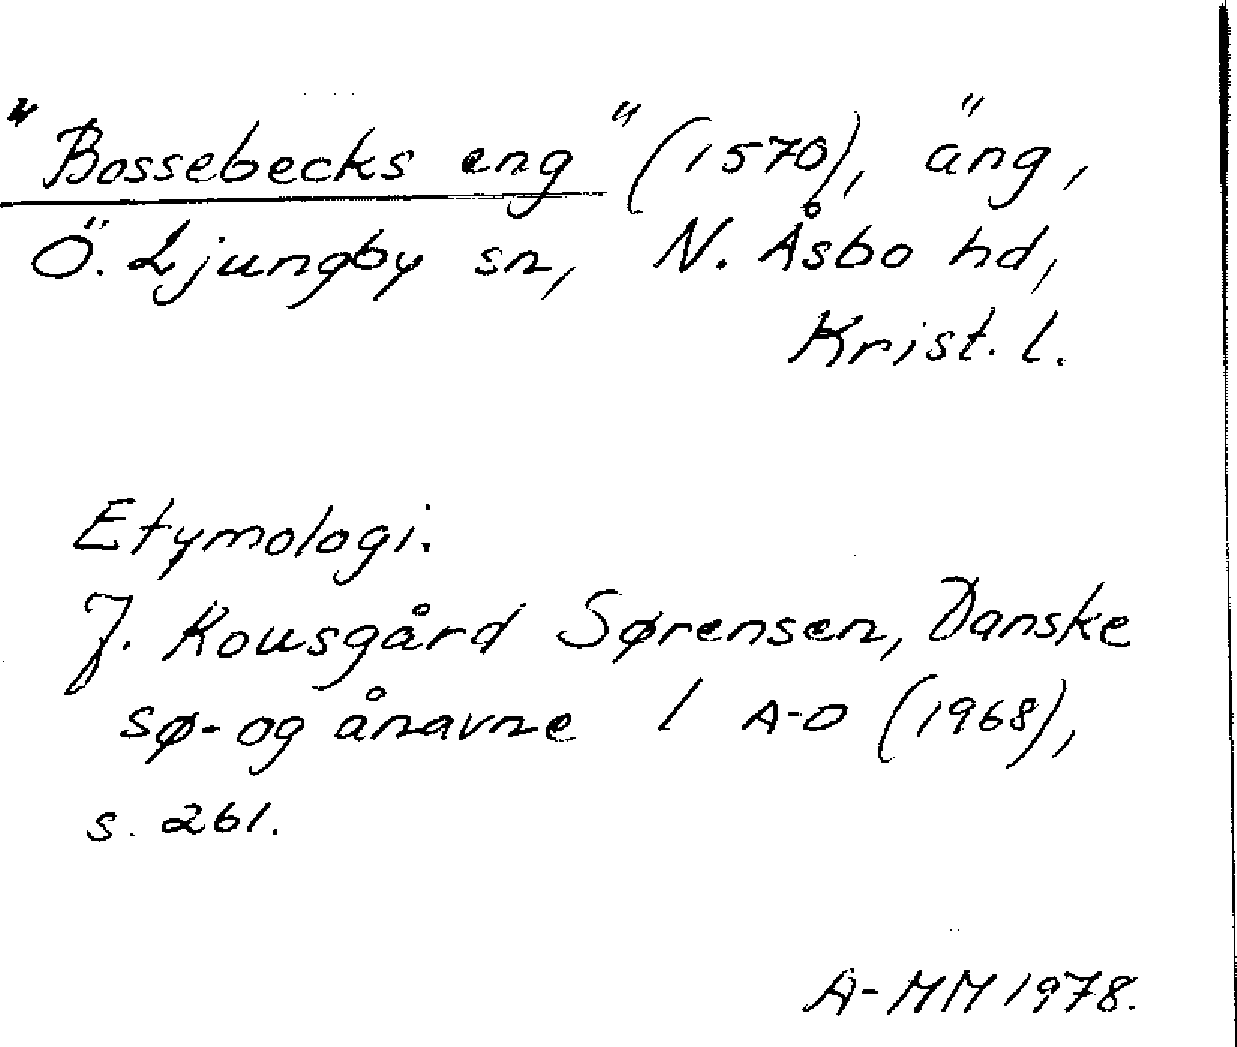 "Bossebecks eng" (1570), äng,
Ö. Ljungby sn, N. Åsbo hd,
Krist. l.
Etymologi.
J. Kousgård Sørensen, Danske
sø- og ånavne 1 A-D (1968),
s. 261.
A-MM 1978.